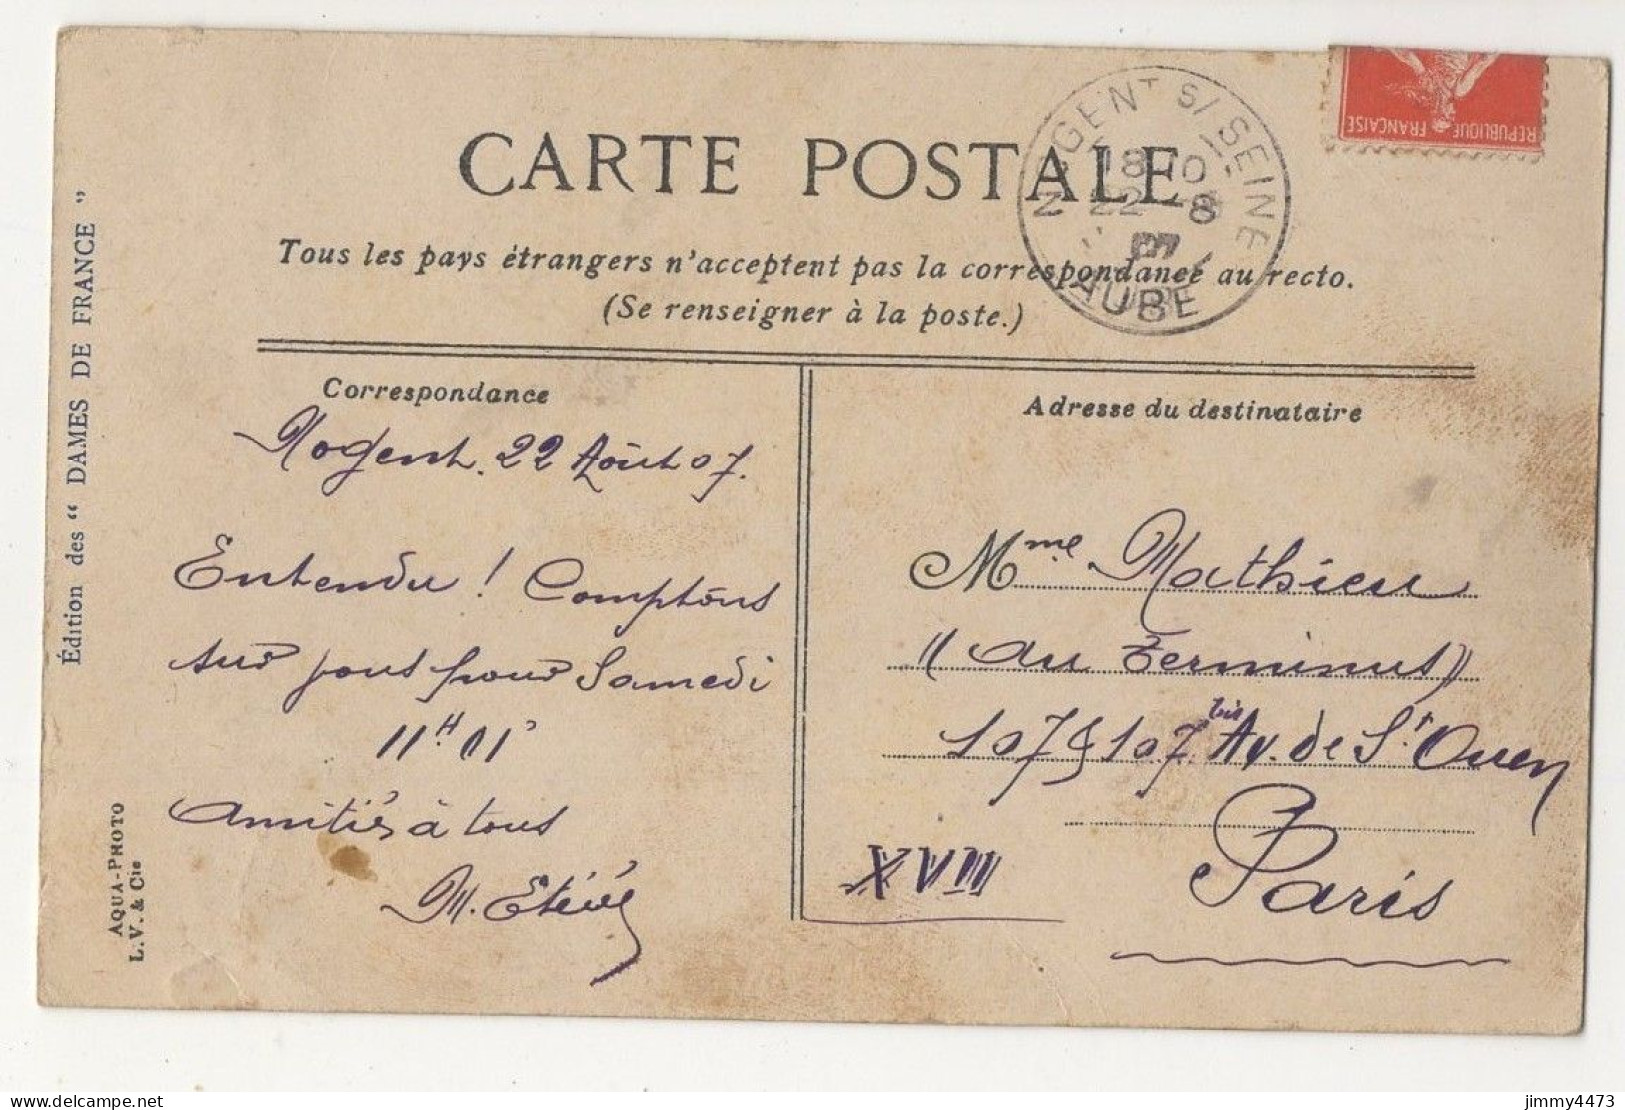 CARTE POSTALE
Tous les pays étrangers n'acceptent pas la correspondance au recto.
(Se renseigner à la poste.)
NOGENT S/ SEINE
18 10
22 - 8
07
AUBE
REPUBLIQUE FRANÇAISE
Édition des “ DAMES DE FRANCE ”
AQUA-PHOTO
L. V. & Cie
Correspondance
Nogent. 22 Août 07.
Entendu ! Comptons
sur vous pour Samedi
11H 11'
Amitiés à tous
M.
Adresse du destinataire
Mme Mathieu
((au Terminus))
107 & 107 bis Av. de St Ouen
Paris
XVIII
jimmy4473
delcampe.net